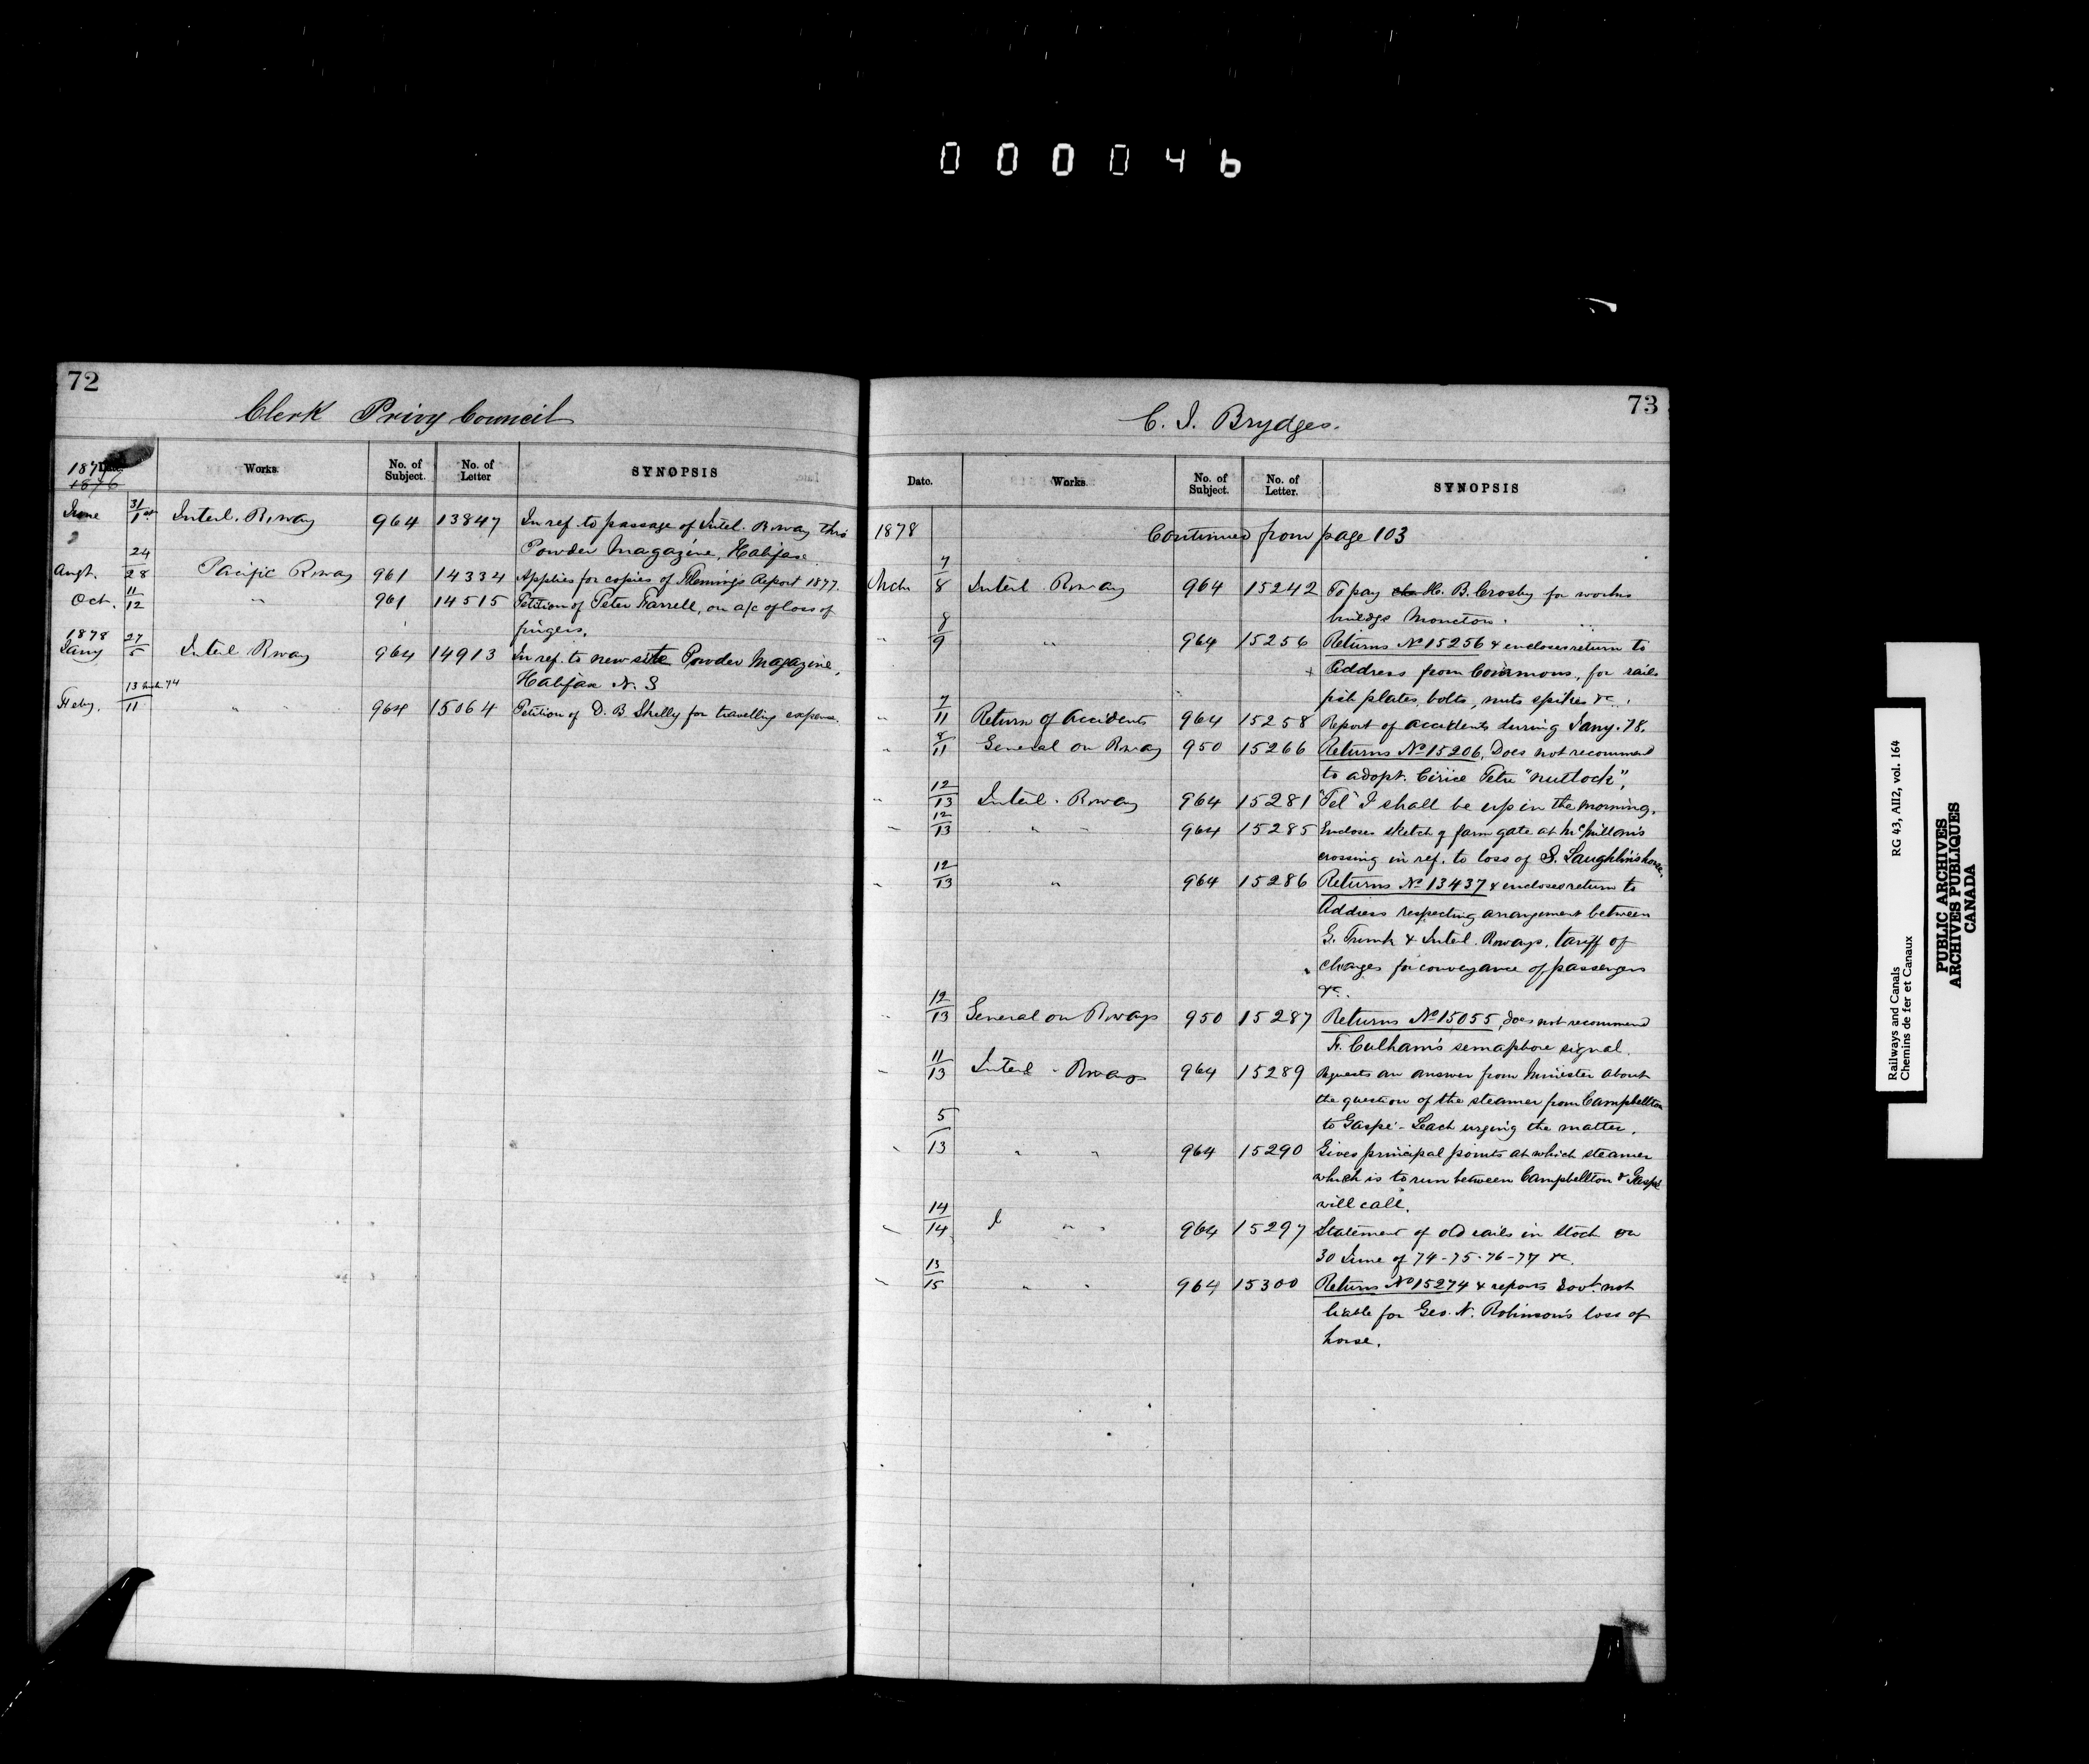 000046
72
Clerk Privy Council
1877 Date.
1876
Works.
No. of Subject.
No. of Letter
SYNOPSIS
June 31/1st Intercl. Rway 964 13847 In ref. to passage of Intel. Rway thro
Powder Magazine, Halifax
Augt. 24/28 Pacific Rway 961 14334 Applies for copies of Flemings Report 1877.
Oct. 11/12 " 961 14515 Petition of Peter Farrell, on a/c of loss of
fingers.
1878
Jany 27/5 Intel Rway 964 14913 In ref. to new site Powder Magazine,
Halifax N. S
Feby. 13 74/11 " " 964 15064 Petition of D. B Skelly for travelling expense.
73
C. J. Brydges.
Date.
Works.
No. of Subject.
No. of Letter.
SYNOPSIS
1878 Continued from page 103
Mch 7/8 Intel Rway 964 15242 To pay H. B. Crosby for works
Moncton.
" 8/9 " 964 15256 Returns No 15256 & encloses return to
+ Address from Commons, for rails
fish plates, bolts, nuts spikes &c.
" 7/11 Return of Accidents 964 15258 Report of accidents during Jany. 78.
" 8/11 General on Rway 950 15266 Returns No 15206. Does not recommend
to adopt. "nutlock",
" 12/13 Intel. Rway 964 15281 "Tel" I shall be up in the morning.
" 12/13 " " 964 15285 Encloses sketch of farm gate at
crossing in ref. to loss of S. Laughlin's horse.
" 12/13 " 964 15286 Returns No 13437 & encloses return to
Address respecting arrangement between
G. Trunk & Intel. Rways, tariff of
charges for conveyance of passengers
&c.
" 12/13 General on Rways 950 15287 Returns No 15055, does not recommend
F. Culham's semaphore signal.
" 11/13 Intel. Rways 964 15289 Requests an answer from Minister about
the question of the steamer from Campbellton
to Gaspé - Leach urging the matter.
" 5/13 " " 964 15290 Gives principal points at which steamer
which is to run between Campbellton & Gaspé
will call.
" 14/14 " " 964 15297 Statement of old rails in stock on
30 June of 74-75-76-77 &c.
" 13/15 " " 964 15300 Returns No 15274 & reports Govt. not
liable for Geo. N. Robinson's loss of
horse.
Railways and Canals RG 43, AII2, vol. 164
Chemins de fer et Canaux
PUBLIC ARCHIVES
ARCHIVES PUBLIQUES
CANADA